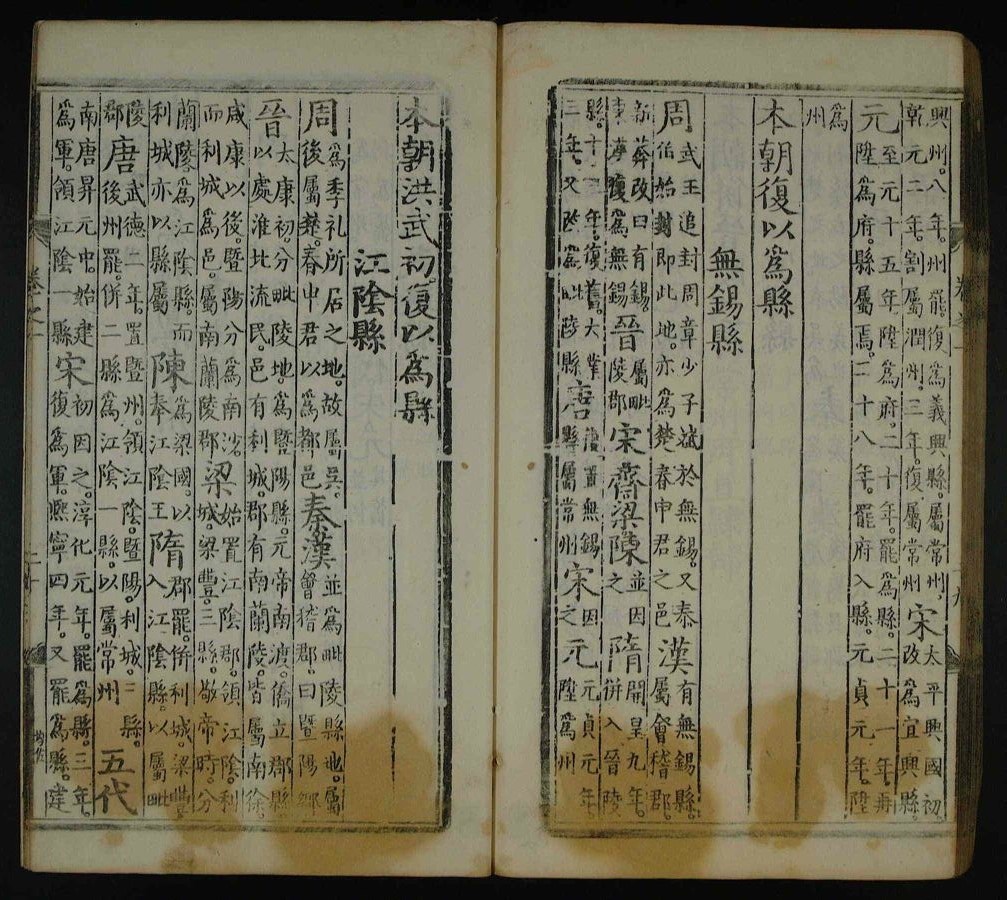 興州。八年。州罷。復爲義興縣。屬常州。乾元二年。割屬潤州。三年。復屬常州宋太平興國初。改爲宜興縣。
元至元十五年。陞爲府。二十年。罷爲縣。二十一年。再陞爲府。縣屬焉。二十八年。罷府入縣。元貞元年。陞
爲州
本朝復以爲縣
無錫縣
周武王追封周章少子斌於無錫。又泰伯始封即此地。亦爲楚春申君之邑漢有無錫縣。屬會稽郡。
新莽改曰有錫。東漢復爲無錫。晉屬毗陵郡宋齊梁陳並因之隋開皇九年。併入晉陵
縣。十二年。復舊。大業三年。又爲毗陵縣唐復置無錫縣屬常州宋因之元元貞元年。陞爲州
卷之一
本朝洪武初。復以爲縣
江陰縣
周爲季札所居之地。故屬吳。後屬楚。春申君以爲都邑秦漢並爲毗陵縣地。屬會稽郡。曰暨陽鄉
晉太康初。分毗陵地。爲暨陽縣。元帝南渡。僑立郡縣以處淮北流民。邑有利城。郡有南蘭陵。皆屬南徐。
咸康以後。暨陽分爲南沙。而利城爲邑。屬南蘭陵郡梁始置江陰郡。領江陰利城。梁豐。三縣。敬帝時。分
蘭陵爲江陰縣。而利城亦以縣屬陳爲梁國。以奉江陰王隋郡罷。併利城。梁豐入江陰縣。以屬毗
陵郡唐武德二年。置暨州。領江陰。暨陽。利城。三縣。後州罷。併二縣。爲江陰一縣。以屬常州五代
南唐昇元中。始建爲軍。領江陰一縣宋初因之。淳化元年。罷爲縣。三年。復爲軍。熙寧四年。又罷爲縣。建
卷之一
二十